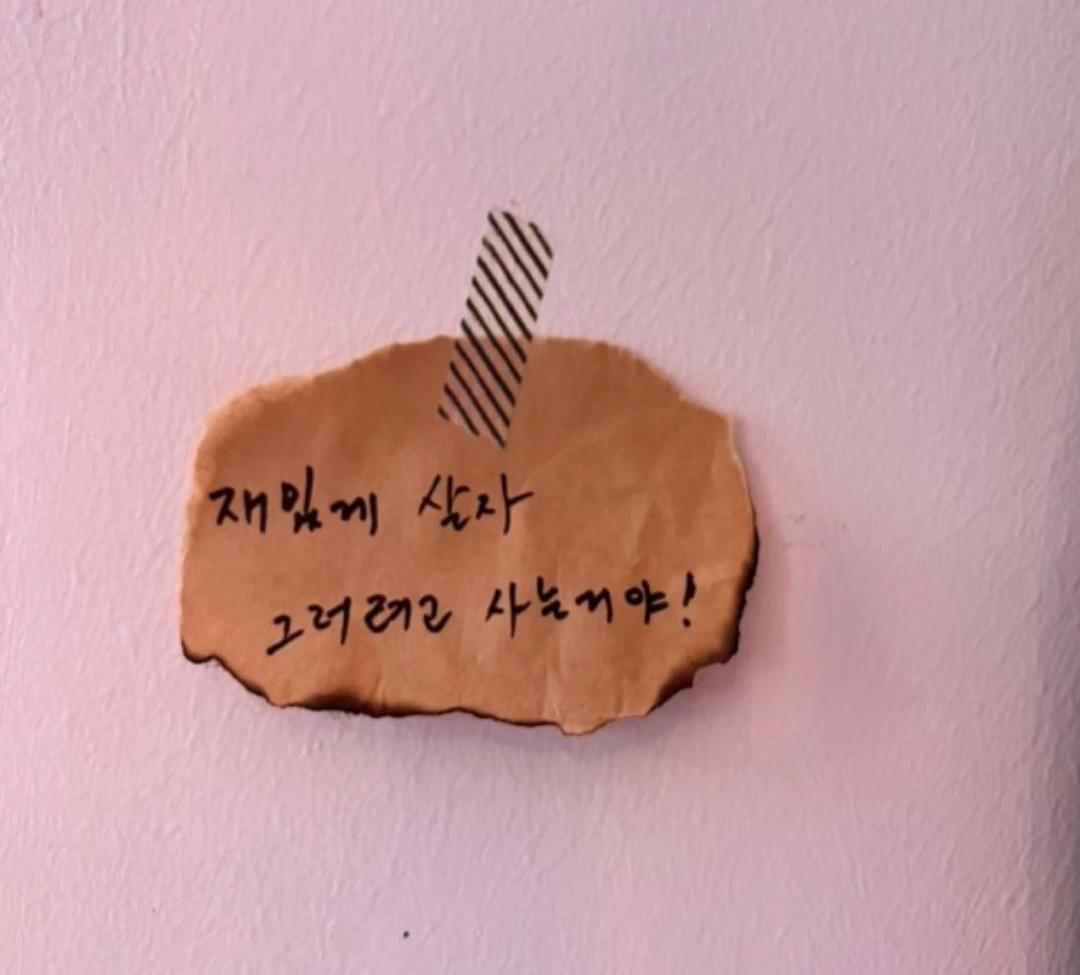 재밌게 살자
그러려고 사는거야!